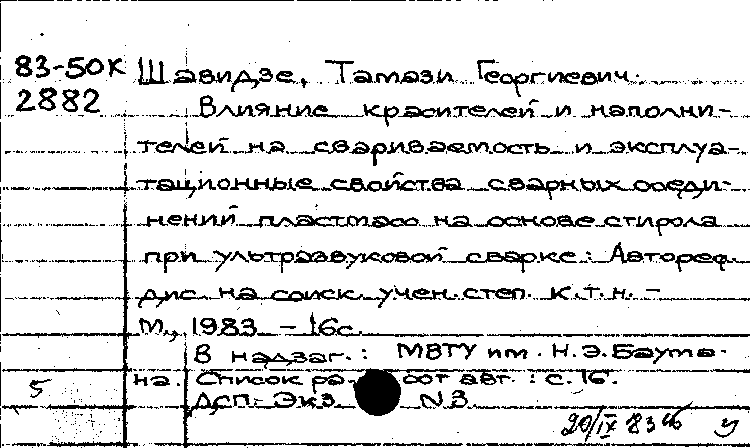 83-50К
2882
Шавидзе, Тамази Георгиевич.
Влияние красителей и наполни-
телей на свариваемость и эксплуа-
тационные свойства сварных соеди-
нений пластмасс на основе стирола
при ультразвуковой сварке: Автореф.
дис. на соиск. учен. степ. к.т.н. –
М., 1983 – 16с.
В надзаг.: МВТУ им. Н.Э.Баума-
на. Список работ авт.: с.16.
ДСП. Экз. N3.
5
20/IX 83